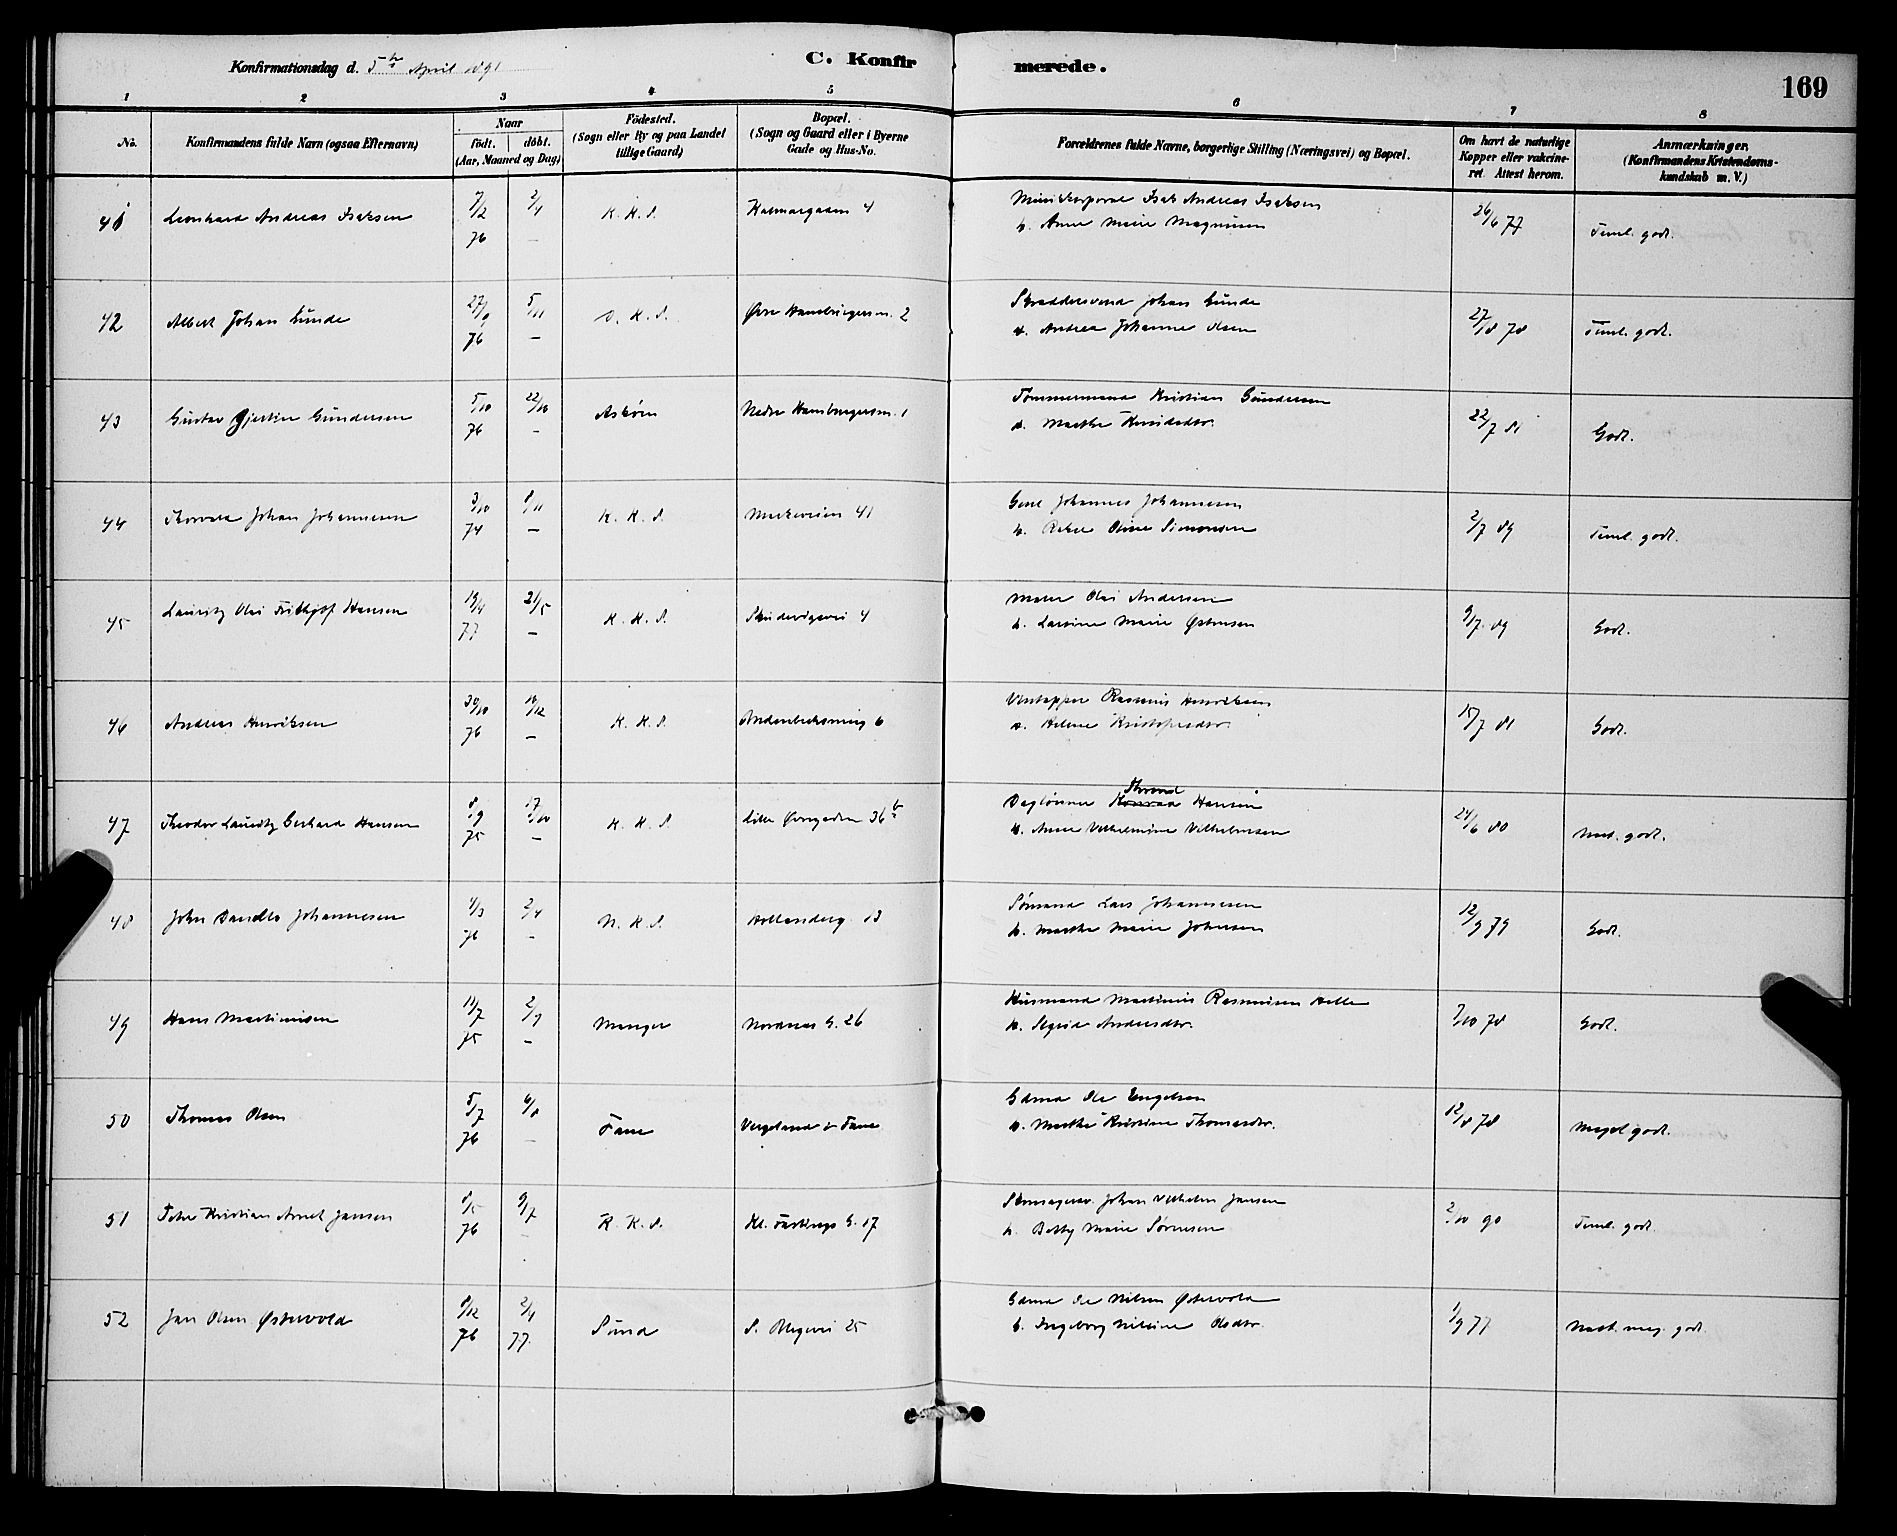 Konfirmationsdag d. 5te April 1891
C. Konfirmerede.
169
1 2 3 4 5 6 7 8
No. Konfirmandens fulde Navn (ogsaa Efternavn) Naar födt. döbt. (Aar, Maaned og Dag) Födested. (Sogn eller By og paa Landet tillige Gaard) Bopæl. (Sogn og Gaard eller i Byerne Gade og Hus-No. Forældrenes fulde Navne, borgerlige Stilling (Næringsvei) og Bopæl. Om havt de naturlige Kopper eller vakcineret. Attest herom. Anmærkninger. (Konfirmandens Kristendomskundskab m. V.)
41 Leonhard Andreas Isaksen 7/2 76 2/4 – K. K. S. Kalmargaden 4 Isak Andreas Isaksen 26/6 77 Teml. godt.
h. Anne Marie Magnusen
42 Albert Johan Gunde 27/9 76 5/11 – D. K. S. Øvre Hamburgersm. 2 Skræddersvend Johan Gunde 27/8 78 Teml. godt.
h. Andrea Johanne Olsen
43 Gustav Gjertin Gundersen 5/10 76 22/10 – Askøen Nedre Hamburgersm. 1 Tømmermand Kristian Gundersen 22/7 81 Godt.
h. Marthe
44 Thorvald Johan Johannesen 3/10 74 8/11 – K. K. S. Markeveien 41 Johannes Johannesen 2/7 89 Teml. godt.
h. Oline Simonsen
45 Lauritz Olai Frithjof Hansen 19/4 77 21/5 – K. K. S. Skudevigsvei 4 Maler Olai Andersen 9/7 89 Godt.
h. Larsine Marie Østensen
46 Andreas Henriksen 30/10 76 10/12 – K. K. S. 6 Rasmus Henriksen 15/7 81 Godt.
h. Helene Kristofersdtr.
47 Theodor Lauritz Gerhard Hansen 8/9 75 17/10 – K. K. S. Lille Øvregaden 36 b Daglønner Hansen 24/6 80 Mat. godt.
h. Anne Vilhelmine Vilhelmsen
48 John Johannesen 4/3 76 2/4 – N. K. S. Hollenderg. 13 Sømand Lars Johannesen 12/9 79 Godt.
h. Marthe Marie Johnsen
49 Hans Martinusen 11/7 75 2/9 – Manger Nordnæs G. 26 Husmand Martinus Rasmusen Helle 7/10 78 Godt.
h. Sigrid Andersdtr.
50 Thomas Olsen 5/7 76 6/8 – Fane i Fane Gdmd Ole Engelsen 12/8 78 Meget godt.
h. Marthe Kristine Thomasdtr.
51 Peter Kristian Arnet Jansen 8/5 76 9/7 – K. K. S. Kl. G. 17 Johan Vilhelm Jansen 2/10 90 Teml. godt.
h. Betty Marie Sørensen
52 Jan Olsen Østervold 8/12 76 2/4 77. Sund S. Blegevei 25 Gdmd Ole Nilsen Østervold 1/9 77 Mat. meg. godt.
h. Ingeborg Nilsine Olsdtr.